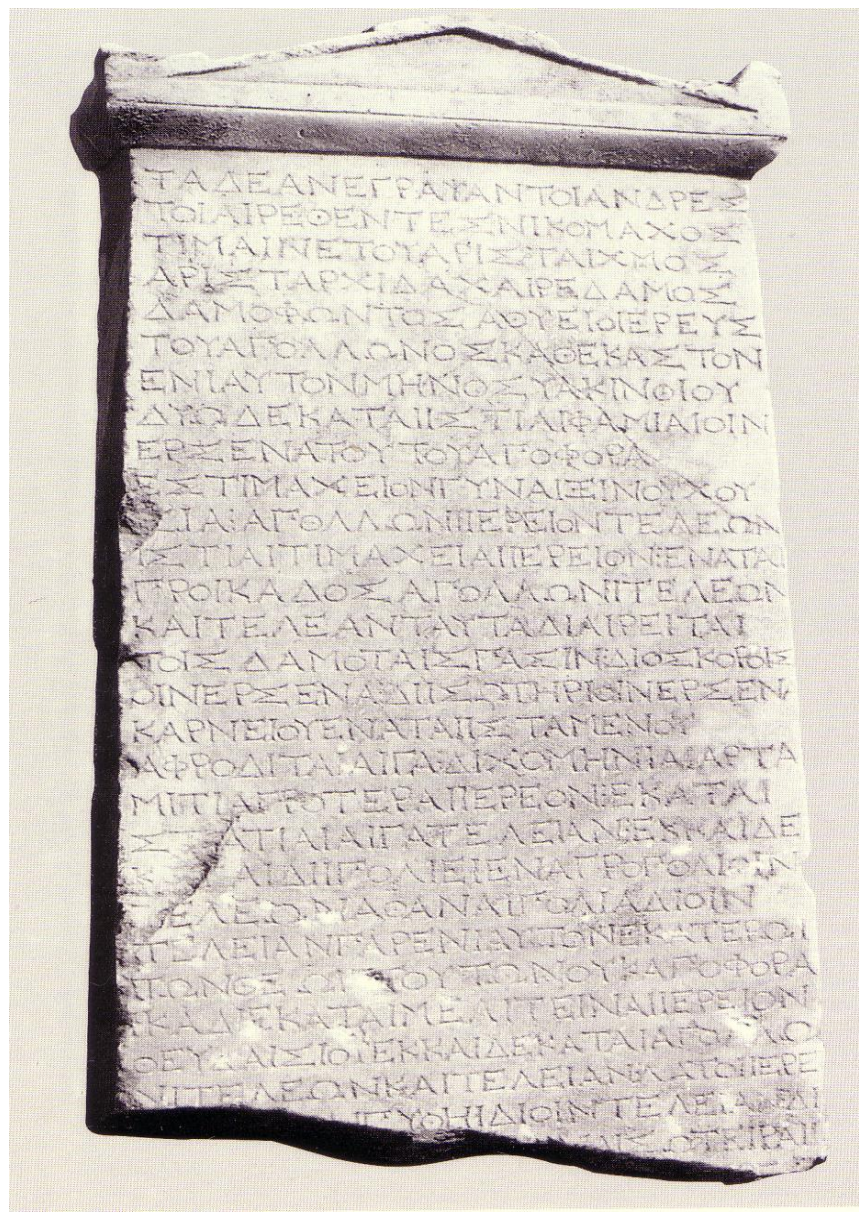 ΤΑΔΕΑΝΕΓΡΑΨΑΝΤΟΙΑΝΔΡΕΣ
ΤΟΙΑΙΡΕΘΕΝΤΕΣΝΙΚΟΜΑΧΟΣ
ΤΙΜΑΙΝΕΤΟΥΑΡΙΣΤΑΙΧΜΟΣ
ΑΡΙΣΤΑΡΧΙΔΑΧΑΙΡΕΔΑΜΟΣ
ΔΑΜΟΦΩΝΤΟΣΑΘΥΕΙΟΙΕΡΕΥΣ
ΤΟΥΑΠΟΛΛΩΝΟΣΚΑΘΕΚΑΣΤΟΝ
ΕΝΙΑΥΤΟΝΜΗΝΟΣΥΑΚΙΝΘΙΟΥ
ΔΥΩΔΕΚΑΤΑΙΙΣΤΙΑΙΦΑΜΙΑΙΟΙΝ
ΕΡΣΕΝΑΤΟΥΤΟΥΑΠΟΦΟΡΑ
ΕΣΤΙΜΑΧΕΙΟΝΓΥΝΑΙΞΙΝΟΥΧΟΥ
ΣΙΑΙΑΠΟΛΛΩΝΙΙΕΡΕΙΟΝΤΕΛΕΩΝ
ΙΣΤΙΑΙΤΙΜΑΧΕΙΑΙΙΕΡΕΙΟΝΕΝΑΤΑΙ
ΠΡΟΙΚΑΔΟΣΑΠΟΛΛΩΝΙΤΕΛΕΩΝ
ΚΑΙΤΕΛΕΑΝΤΑΥΤΑΔΙΑΙΡΕΙΤΑΙ
ΤΟΙΣΔΑΜΟΤΑΙΣΠΑΣΙΝΔΙΟΣΚΟΡΟΙΣ
ΟΙΝΕΡΣΕΝΑΔΙΙΣΩΤΗΡΙΟΙΝΕΡΣΕΝΑ
ΚΑΡΝΕΙΟΥΕΝΑΤΑΙΙΣΤΑΜΕΝΟΥ
ΑΦΡΟΔΙΤΑΙΑΙΓΑΔΙΧΟΜΗΝΙΑΙΑΡΤΑ
ΜΙΤΙΑΓΡΟΤΕΡΑΙΙΕΡΕΟΝΕΚΑΤΑΙ
ΣΤΡΑΤΙΑΙΑΙΓΑΤΕΛΕΙΑΝΕΚΚΑΙΔΕ
ΑΙΔΙΙΠΟΛΙΕΙΕΝΑΓΡΟΠΟΛΙΟΙΝ
ΤΕΛΕΩΝΑΘΑΝΑΙΠΟΛΙΑΔΙΟΙΝ
ΤΕΛΕΙΑΝΠΑΡΕΝΙΑΥΤΟΝΕΚΑΤΕΡΩΙ
ΤΩΝΘΕΩΝΤΟΥΤΩΝΟΥΚΑΠΟΦΟΡΑ
ΙΚΑΔΙΕΚΑΤΑΙΜΕΛΙΤΕΙΝΑΙΙΕΡΕΙΟΝ
ΘΕΥΔΑΙΣΙΟΥΕΚΚΑΙΔΕΚΑΤΑΙΑΠΟΛΛΩ
ΝΙΤΕΛΕΩΝΚΑΙΤΕΛΕΙΑΝΛΑΤΟΙΙΕΡΕ
ΠΥΘΗΙΔΙΟΙΝΤΕΛΕΙΑΝ
ΣΩΤΕΙΡΑΙΙ